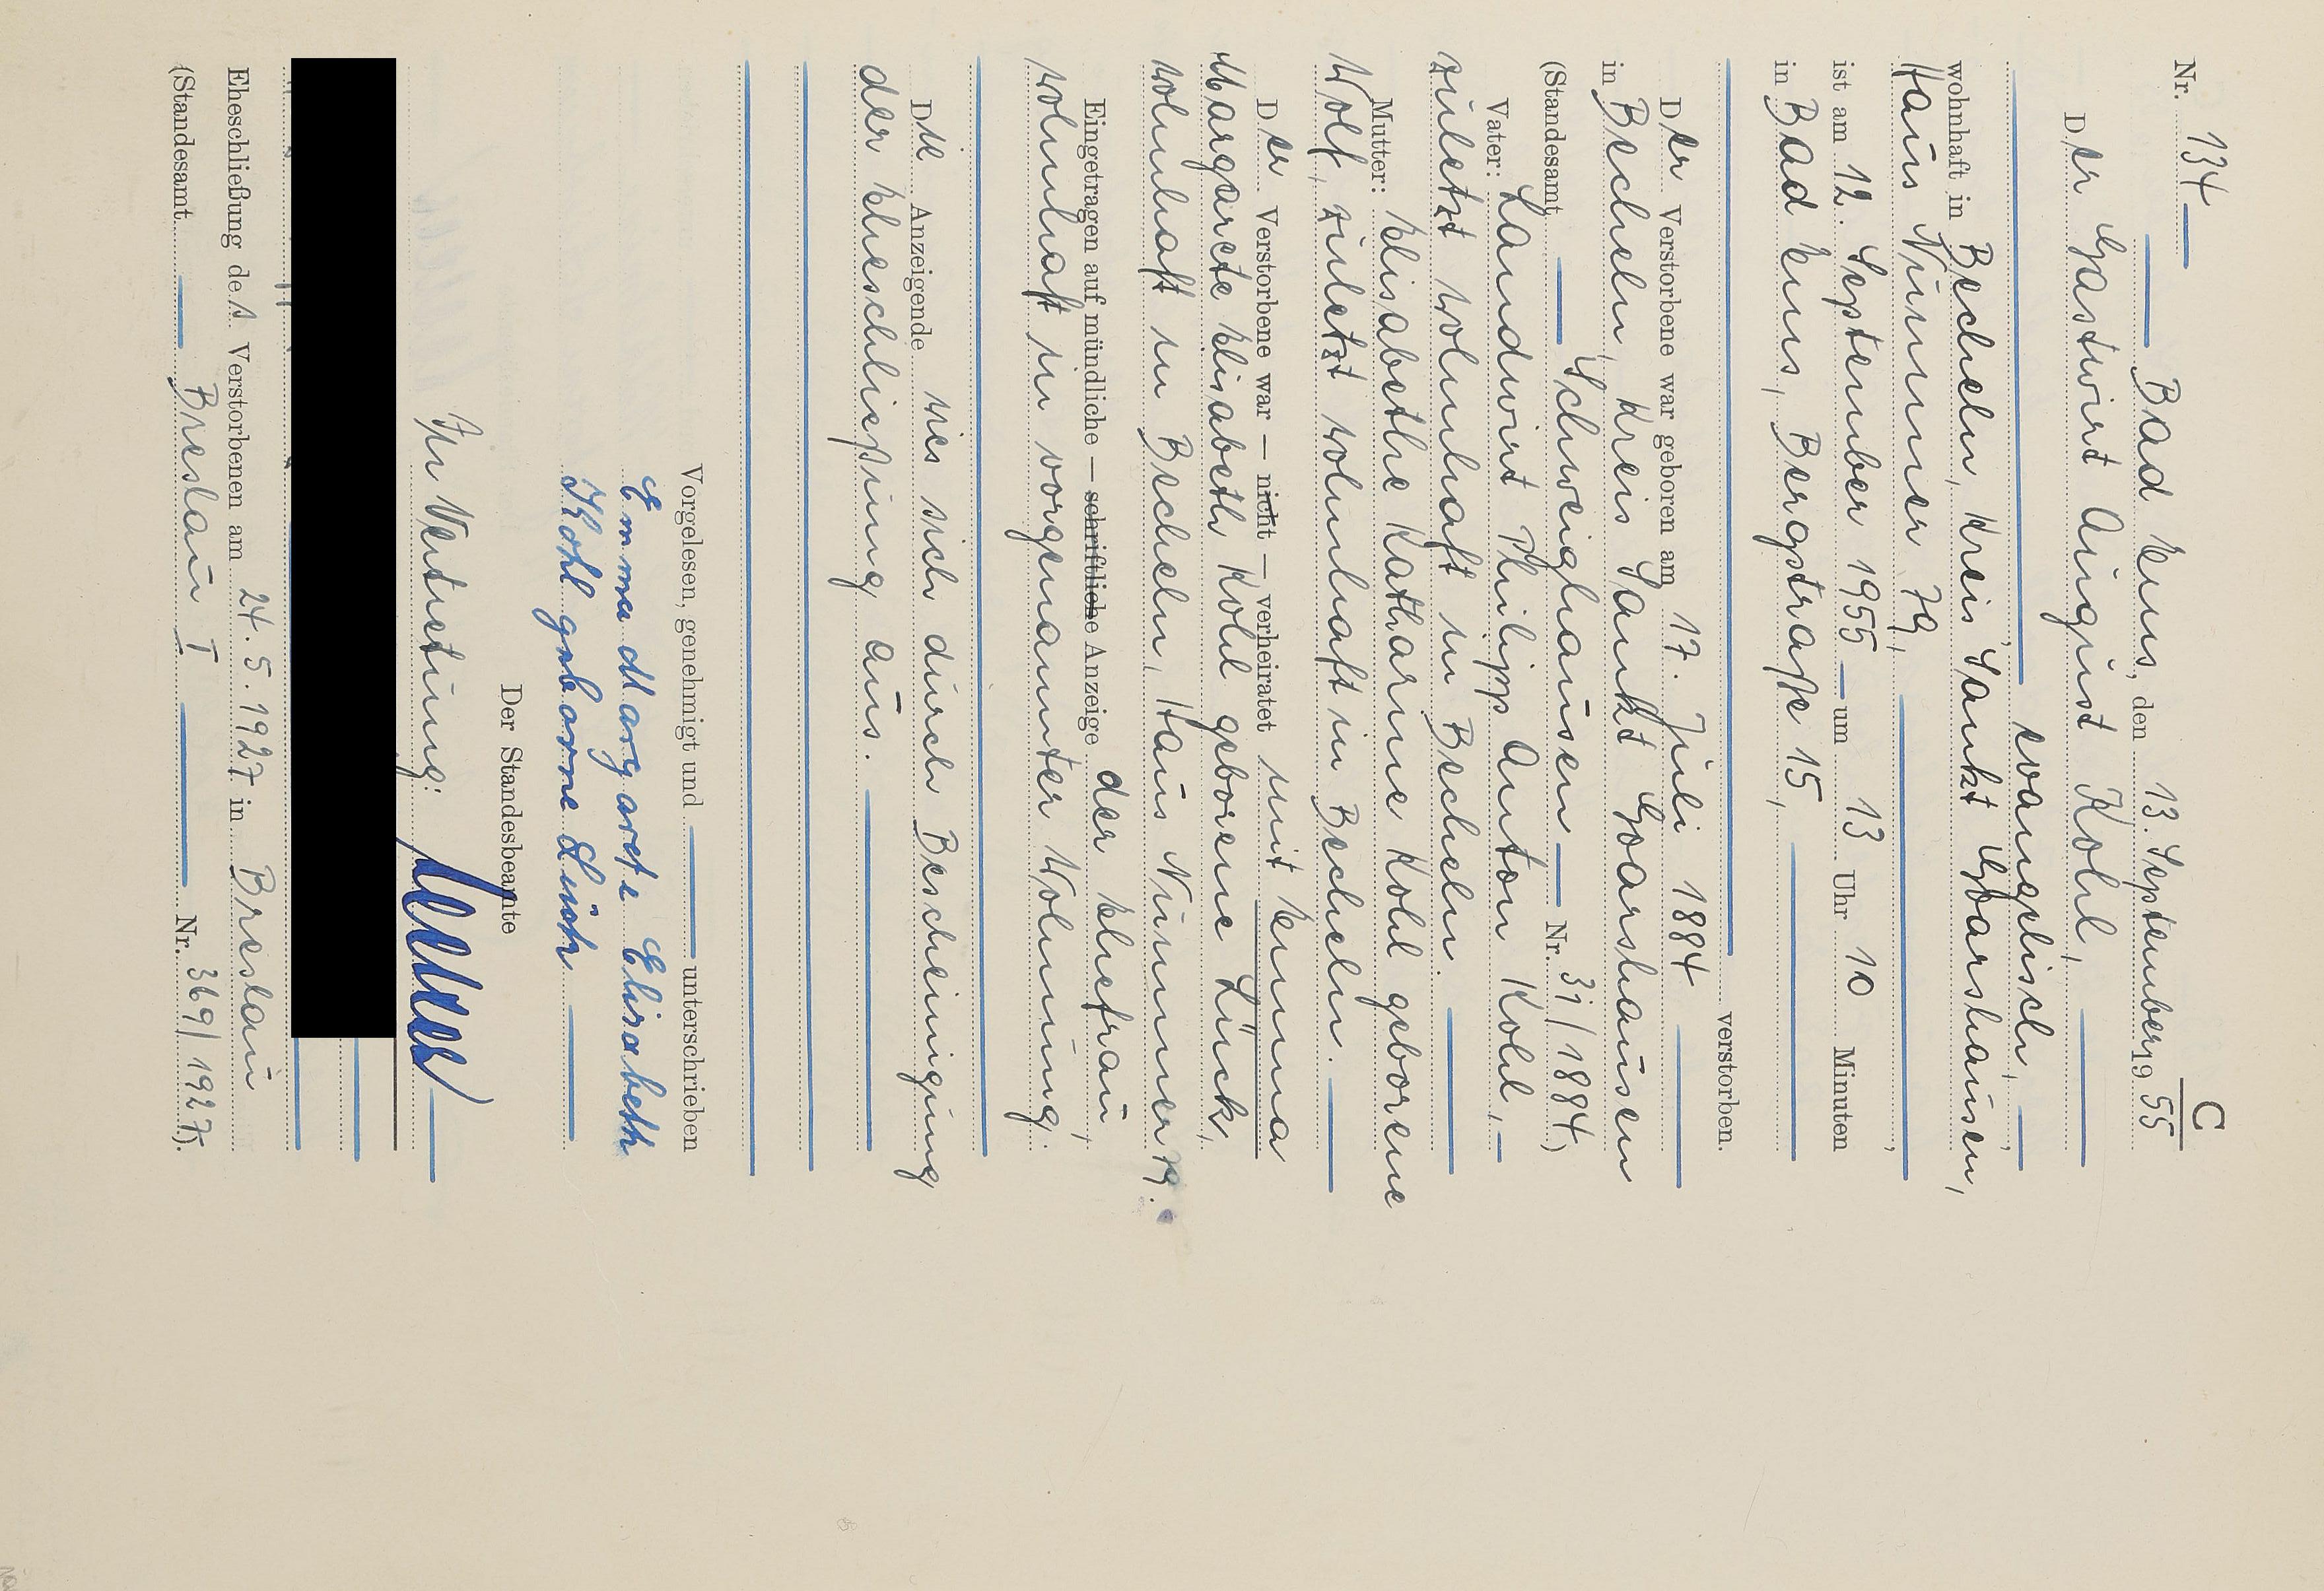 C
Nr. 134
Bad Ems, den 13. September 19 55
Der Gastwirt August Kohl,
evangelisch,
wohnhaft in Becheln, Kreis Sankt Goarshausen,
Haus Nummer 79,
ist am 12. September 1955 um 13 Uhr 10 Minuten
in Bad Ems, Bergstraße 15,
verstorben.
Der Verstorbene war geboren am 17. Juli 1884
in Becheln, Kreis Sankt Goarshausen
(Standesamt Schweighausen Nr. 31/1884)
Vater: Landwirt Philipp Anton Kohl,
zuletzt wohnhaft in Becheln.
Mutter: Elisabethe Katharine Kohl geborene
Wolf, zuletzt wohnhaft in Becheln.
Der Verstorbene war — nicht — verheiratet mit Emma
Margarete Elisabeth Kohl geborene Lück,
wohnhaft in Becheln, Haus Nummer 79.
Eingetragen auf mündliche — schriftliche Anzeige der Ehefrau,
wohnhaft in vorgenannter Wohnung.
Die Anzeigende wies sich durch Bescheinigung
der Eheschließung aus.
Vorgelesen, genehmigt und unterschrieben
Emma Margarete Elisabeth
Kohl geborne Lück
Der Standesbeamte
In Vertretung:
Eheschließung des Verstorbenen am 24.5.1927 in Breslau
(Standesamt Breslau I Nr. 369/1927)